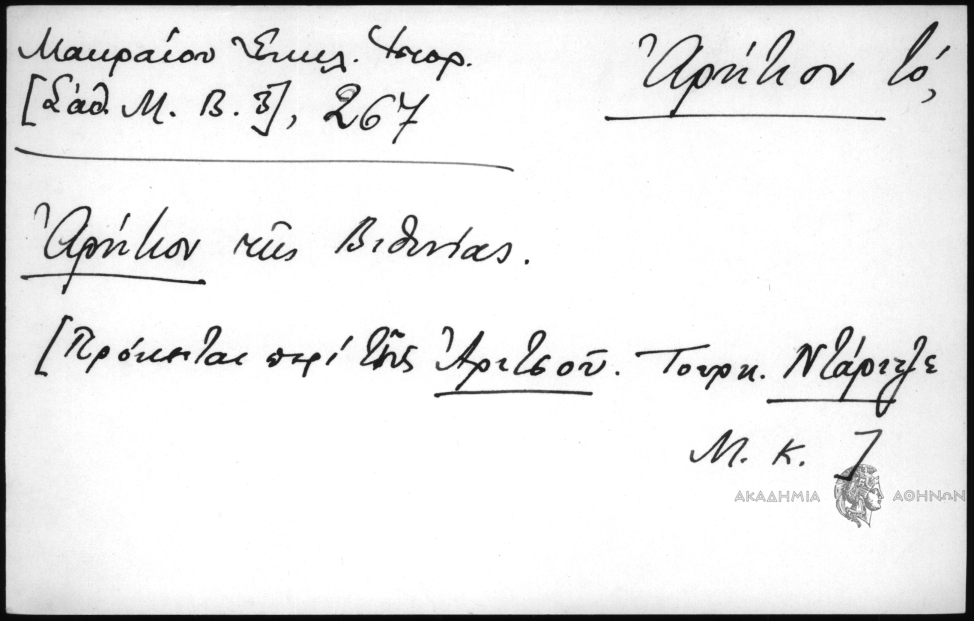 Μακραίου Ἐκκλ. Ἱστορ.
[Σάθ. Μ. Β. Γ], 267
Ἀρήτον τό,
Ἀρήτον τῆς Βιθυνίας.
[Πρόκειται περί τῆς Ἀρετσοῦ. Τουρκ. Ντάριτζε
Μ. Κ. ]
ΑΚΑΔΗΜΙΑ ΑΘΗΝΩΝ